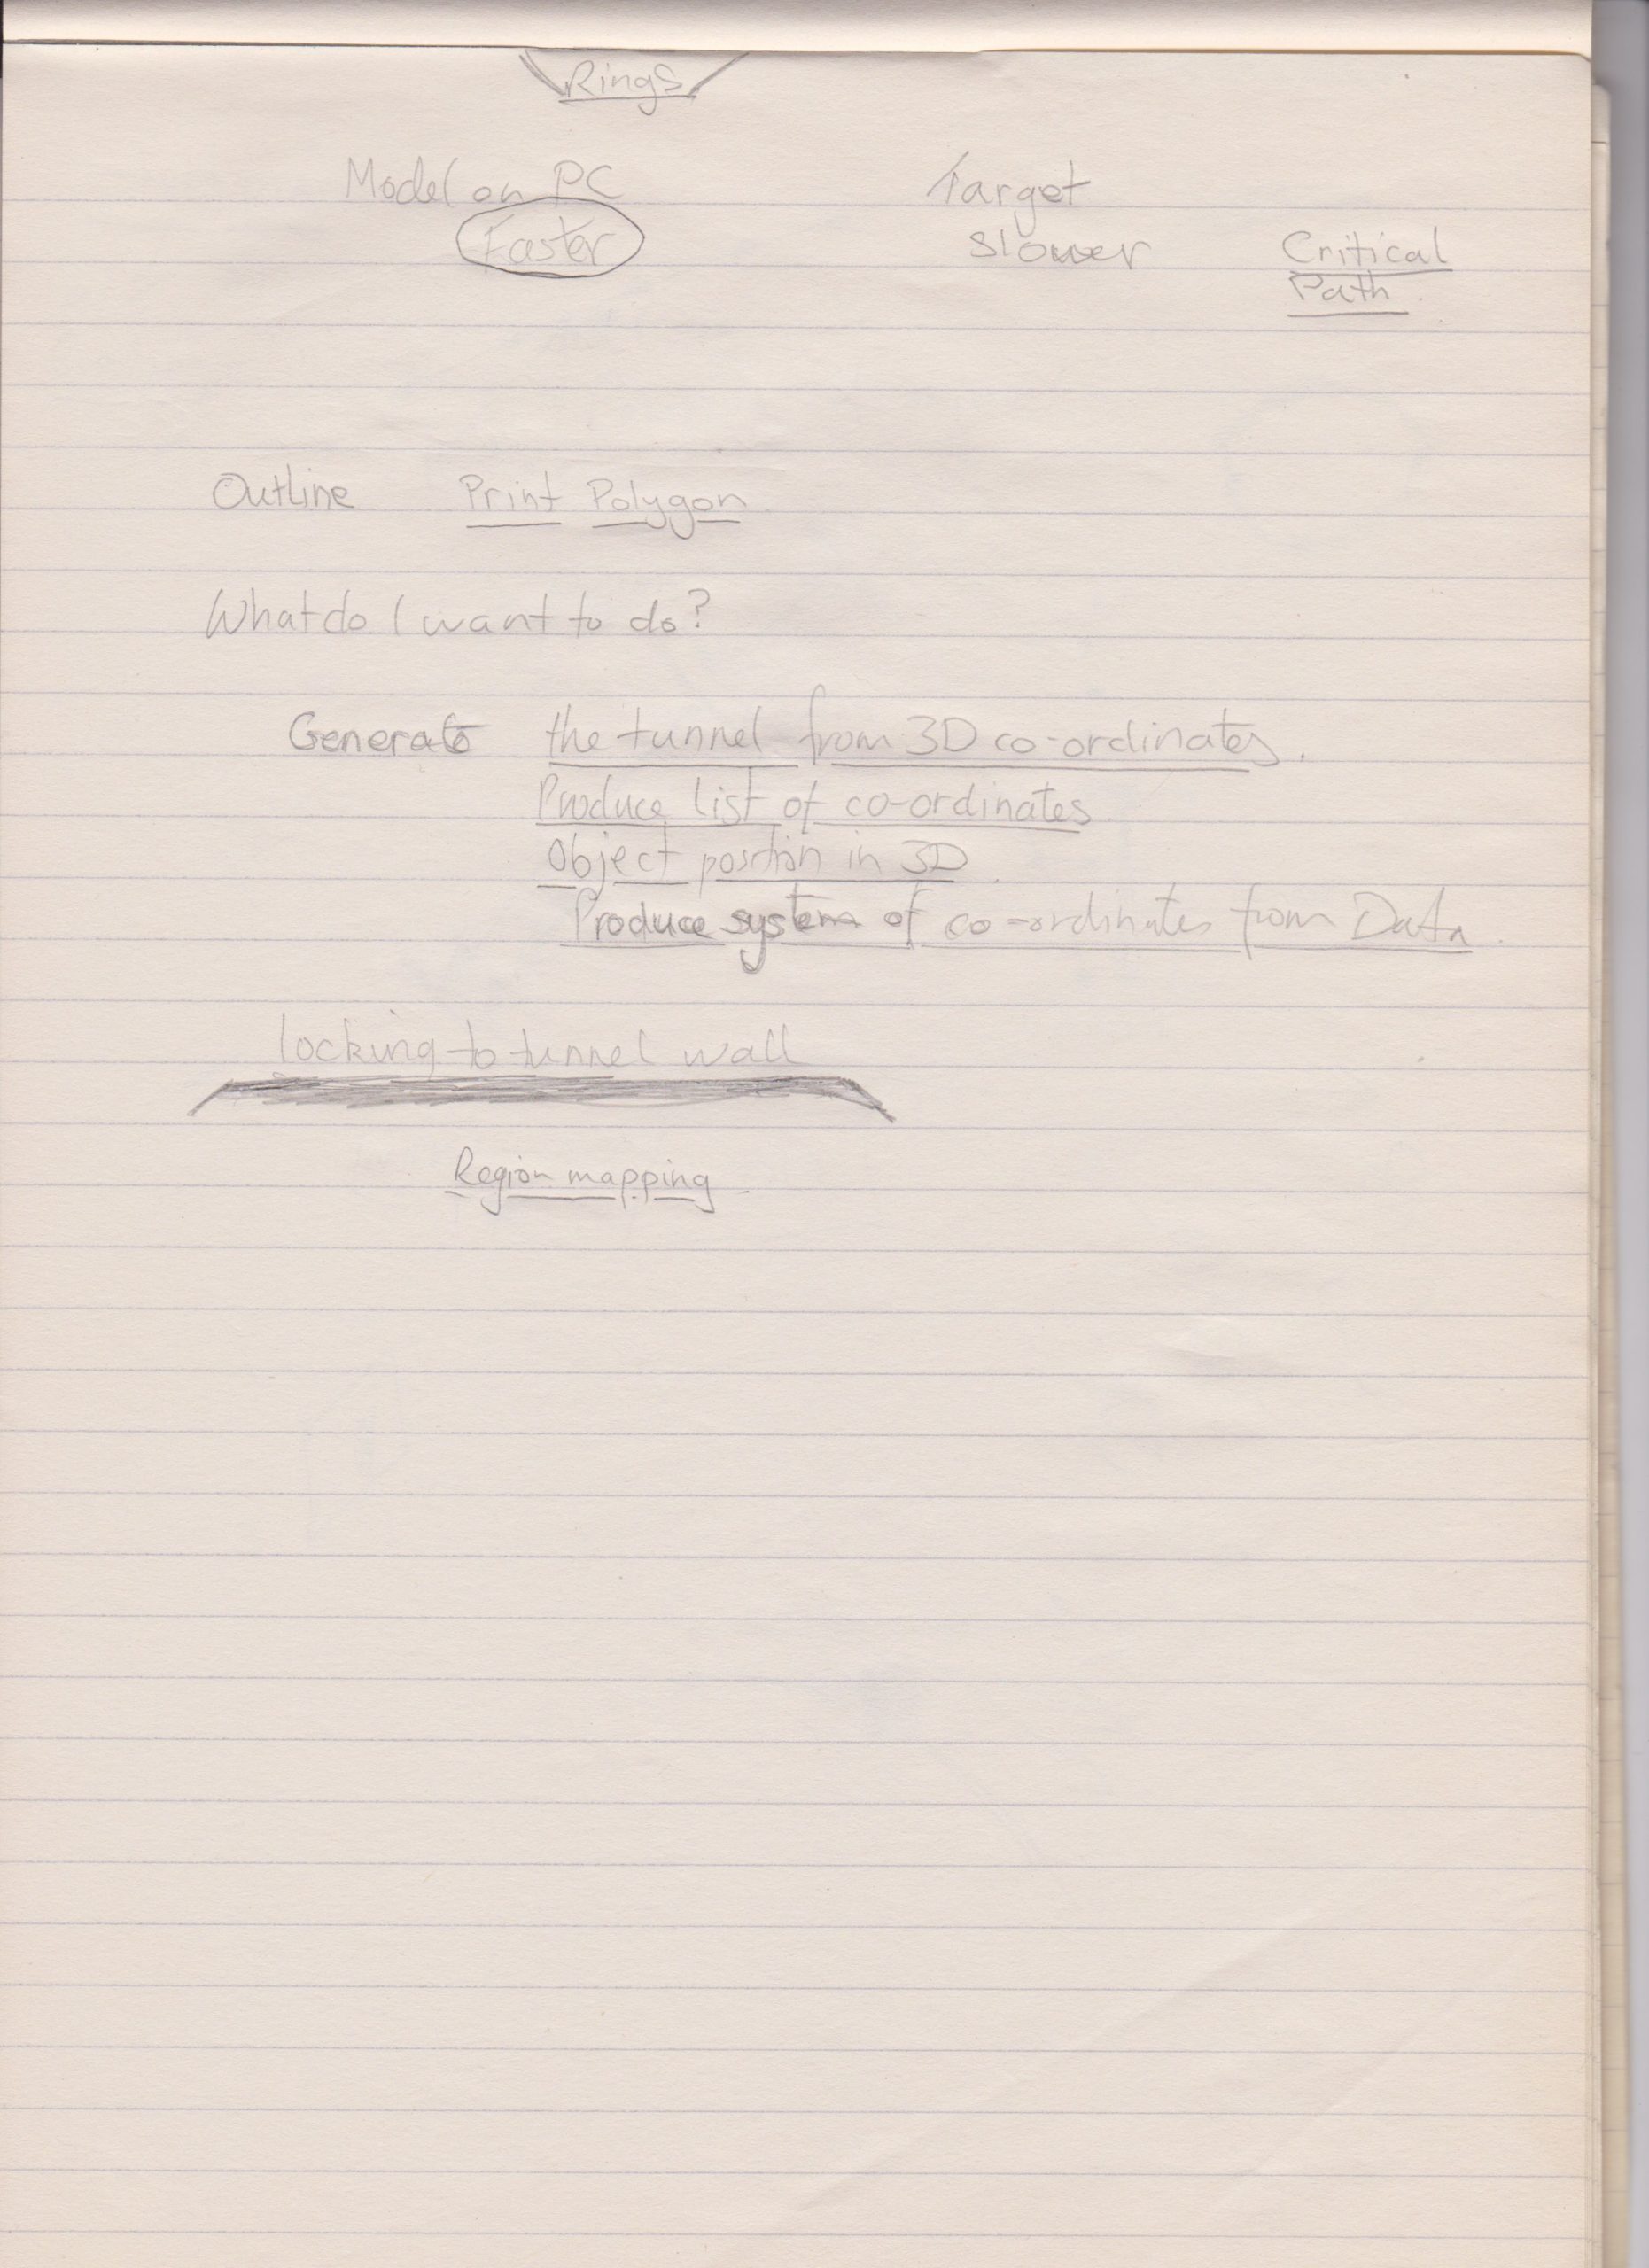 Rings
Model on PC Target
Faster Slower Critical
Path.
Outline Print Polygon.
What do I want to do?
Generate the tunnel from 3D co-ordinates.
Produce list of co-ordinates
Object position in 3D.
Produce system of co-ordinates from Data.
locking to tunnel wall
Region mapping.